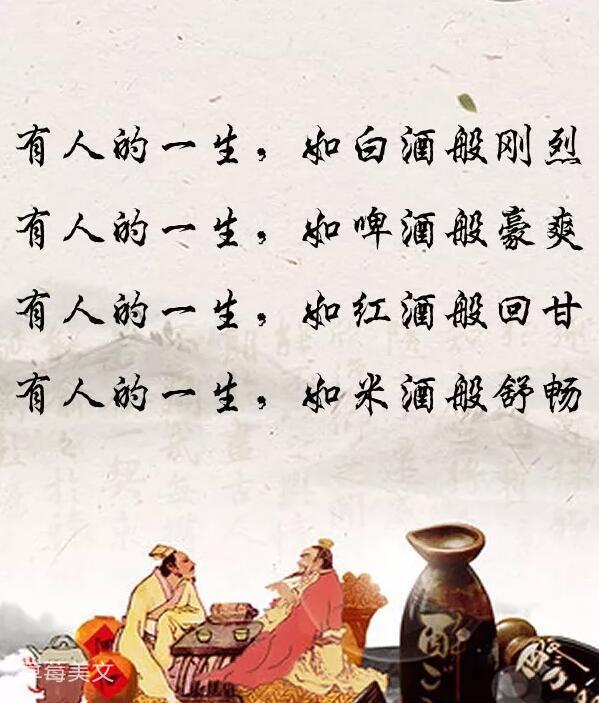 有人的一生，如白酒般刚烈
有人的一生，如啤酒般豪爽
有人的一生，如红酒般回甘
有人的一生，如米酒般舒畅
醉
草莓美文